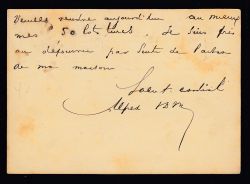 Veuillez vendre aujourd'hui au mieux
mes 50 lots turcs. Je suis pris
au dépourvu par suite de l'achat
de ma maison
Salut cordial
Alfred